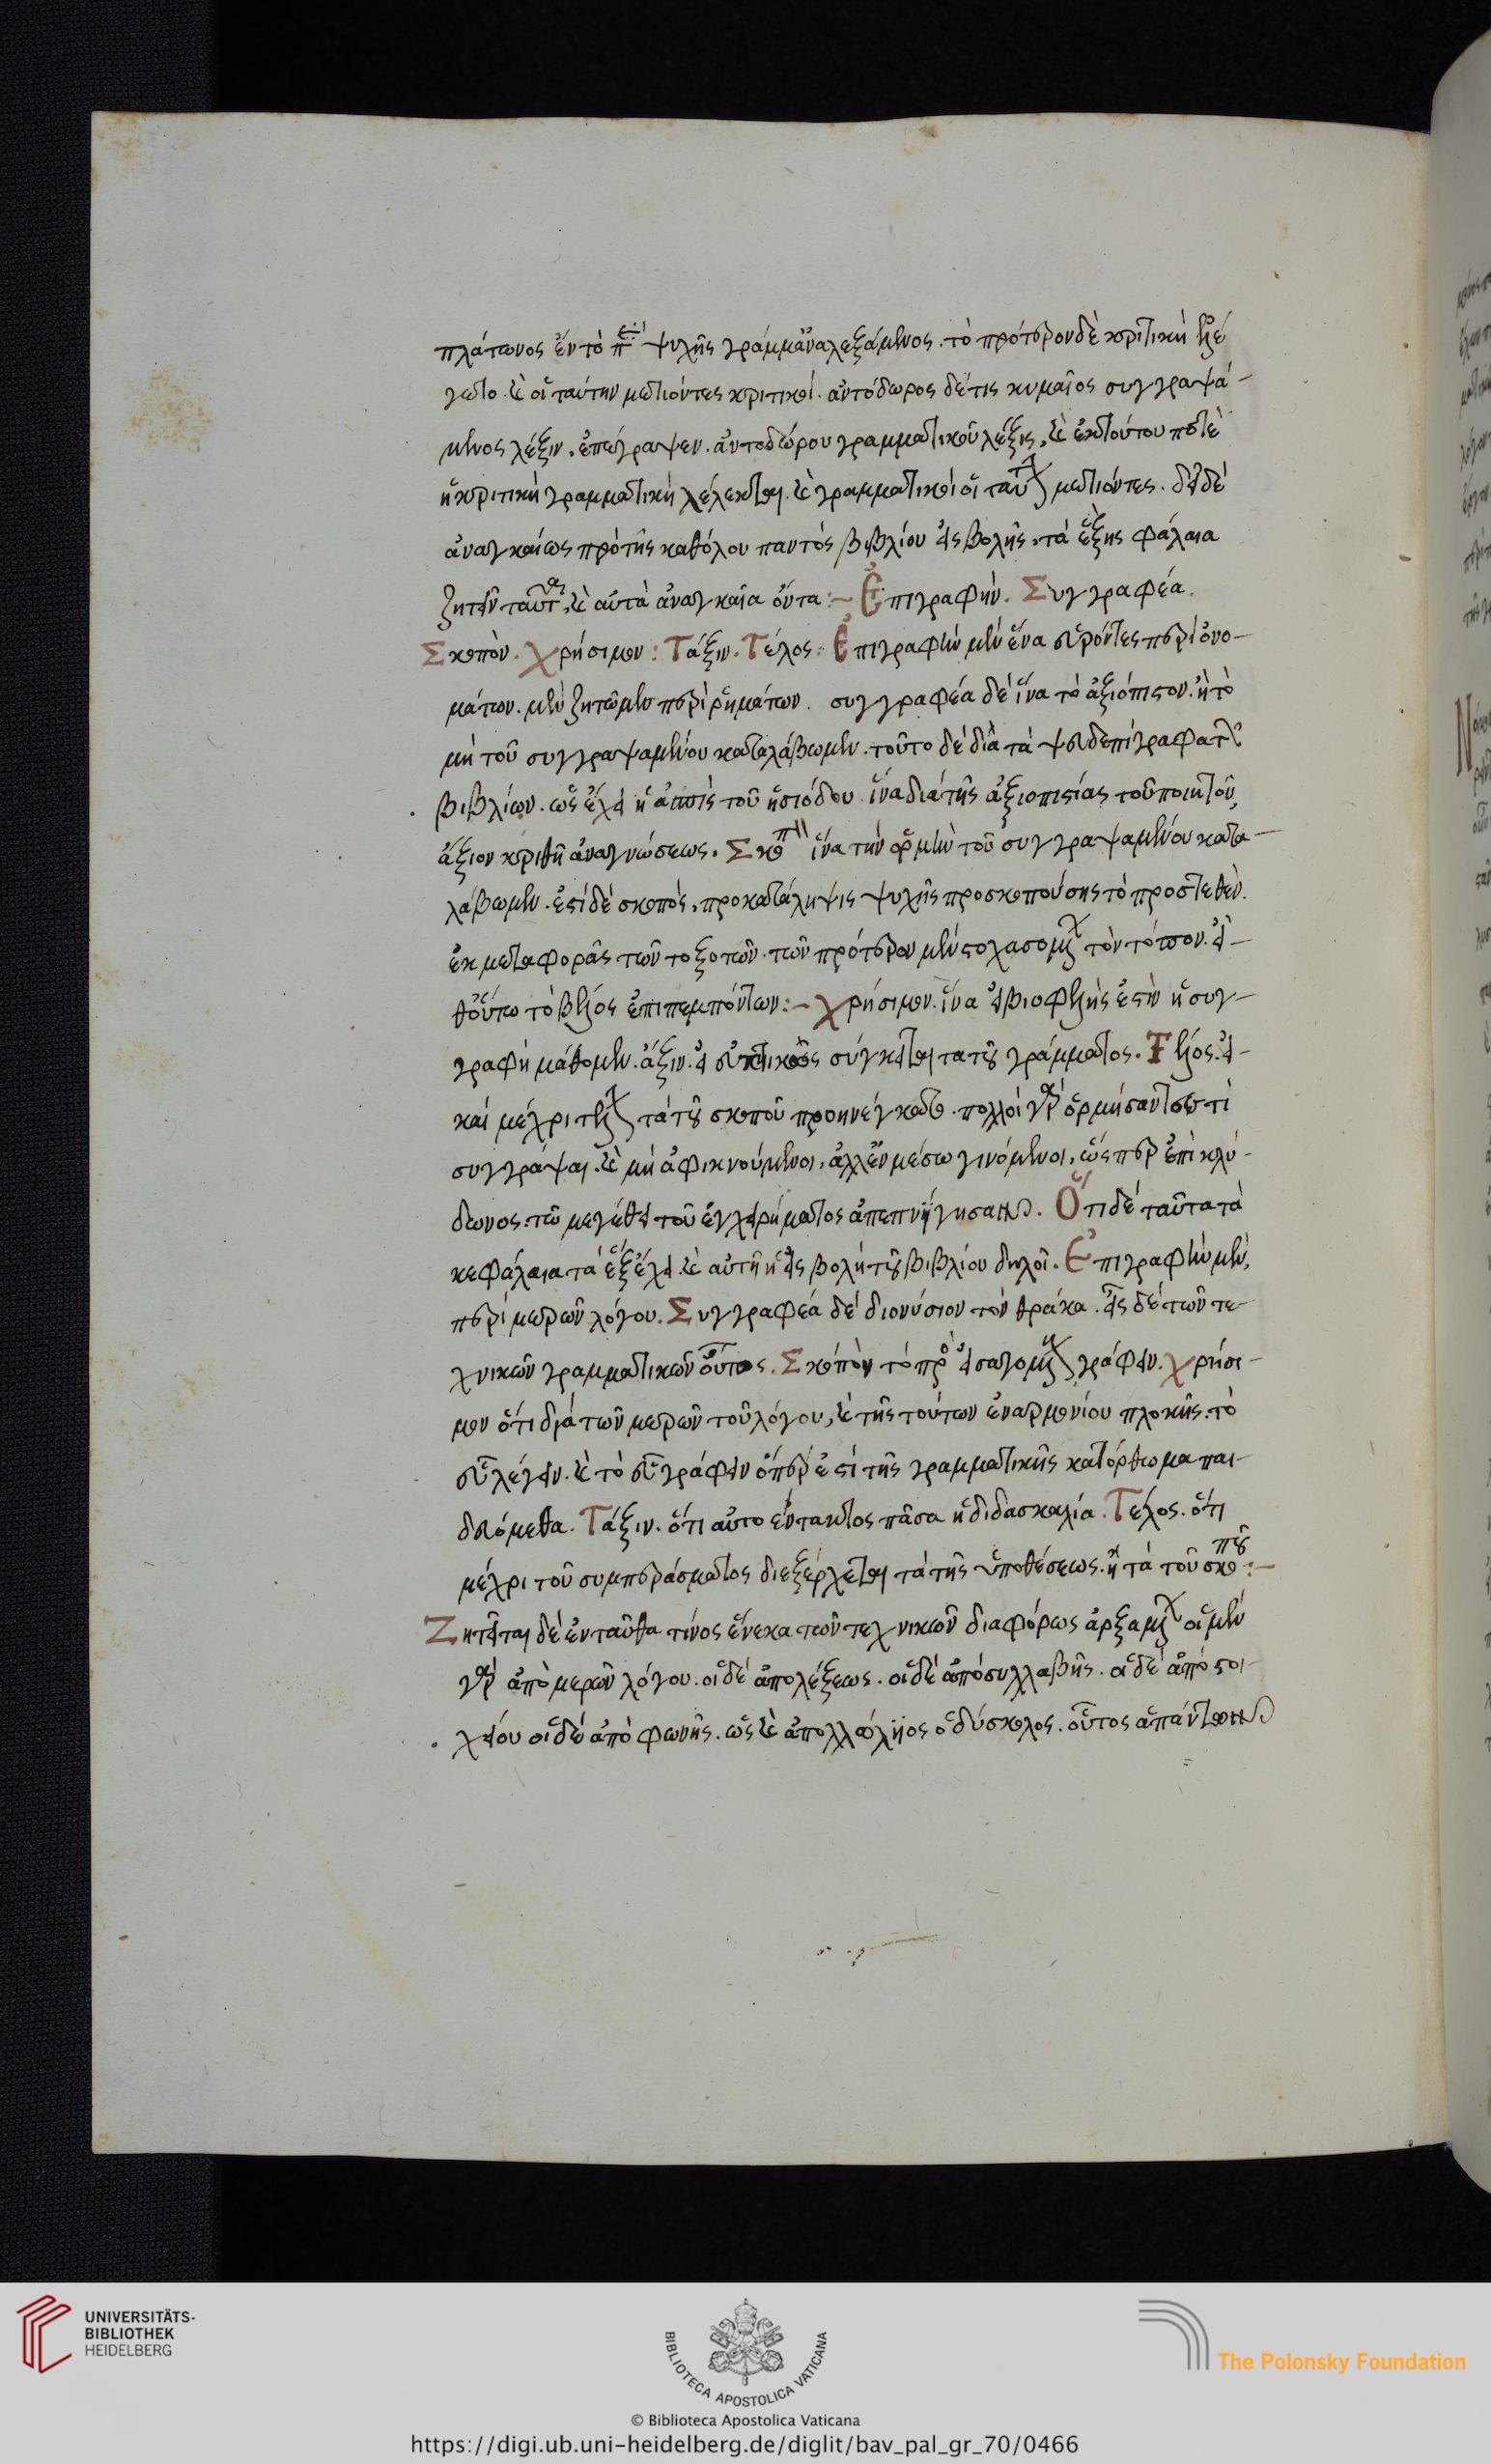 πλάτωνος ἐν τὸ π ψυχῆς γράμμα ἀναλεξάμενος. τὸ πρότερον δὲ κριτικὴ ἐλέ
γετο. καὶ οἱ ταύτην μετιόντες κριτικοί. ἀντόδωρος δέ τις κυμαῖος συγγραψά-
μενος λέξιν, ἐπέγραψεν. ἀντοδώρου γραμματικοῦ λέξις, καὶ ἐκ τούτου ποτὲ
ἡ κριτικὴ γραμματικὴ λέλεκται. καὶ γραμματικοὶ οἱ ταύτην μετιόντες. δεῖ δὲ
ἀναγκαίως πρὸ τῆς καθόλου παντὸς βιβλίου εἰσβολῆς, τὰ ἑξῆς φάλαια
ζητεῖν ταῦτα, καὶ αὐτὰ ἀναγκαῖα ὄντα:- Ἐπιγραφήν. Συγγραφέα.
Σκοπὸν. Χρήσιμον: Τάξιν. Τέλος: Ἐπιγραφὴν μὲν ἵνα εὑρόντες περὶ ὀνο-
μάτων. μὴ ζητῶμεν περὶ ῥημάτων. συγγραφέα δὲ ἵνα τὸ ἀξιόπιστον. ἢ τὸ
μὴ τοῦ συγγραψαμένου καταλάβωμεν. τοῦτο δὲ διὰ τὰ ψευδεπίγραφα τῶν
βιβλίων. ὡς ἔχει ἡ ἀσπὶς τοῦ ἡσιόδου ἵνα διὰ τῆς ἀξιοπιστίας τοῦ ποιητοῦ,
ἄξιον κριθῇ ἀναγνώσεως. Σκοπὸν ἵνα τὴν ὁρμὴν τοῦ συγγραψαμένου κατα-
λάβωμεν. ἐστὶ δὲ σκοπός, προκατάληψις ψυχῆς προσκοπούσης τὸ προστεθέν.
ἐκ μεταφορᾶς τῶν τοξοτῶν. τῶν πρότερον μὲν στοχαζομένων τὸν τόπον. εἶ-
θ' οὕτω τὸ βέλος ἐπιπεμπόντων:- Χρήσιμον. ἵνα εἰ βιωφελής ἐστιν ἡ συγ-
γραφὴ μάθομεν. άξιν. εἰ εὐτάκτως σύγκειται τὰ τοῦ γράμματος. Τέλος. εἰ-
καὶ μέχρι τέλους τὰ τοῦ σκοποῦ προηνέγκατο. πολλοὶ γὰρ ὁρμήσαντες τὶ
συγγράψαι. καὶ μὴ ἀφικνούμενοι, ἀλλ' ἐν μέσω γινόμενοι, ὥσπερ ἐπὶ κλύ-
δωνος. τῶ μεγέθει τοῦ ἐγχειρήματος ἀπεπνίγησαν. Ὅτι δὲ ταῦτα τὰ
κεφάλαια τὰ ἓξ ἔχει. καὶ αὐτὴ ἡ εἰσβολὴ τοῦ βιβλίου δηλοῖ. Ἐπιγραφὴν μὲν,
περὶ μερῶν λόγου. Συγγραφέα δὲ διονύσιον τὸν θράκα. εἷς δὲ τῶν τε-
χνικῶν γραμματικῶν οὗτος. Σκόπὸν τὸ πρὸς εἰσαγομένους γράφειν. Χρήσι-
μον ὅτι διὰ τῶν μερῶν τοῦ λόγου, καὶ τῆς τούτων ἐναρμονίου πλοκῆς. τὸ
εὖ λέγειν. καὶ τὸ εὖ γράφειν ὅπερ ἐστὶ τῆς γραμματικῆς κατόρθωμα παι-
δευόμεθα. Τάξιν. ὅτι αὐτο εὔτακτος πᾶσα ἡ διδασκαλία. Τέλος. ὅτι
μέχρι τοῦ συμπεράσματος διεξέρχεται τὰ τῆς ὑποθέσεως. ἢ τὰ τοῦ σκοποῦ:-
Ζητεῖται δὲ ἐνταῦθα τίνος ἕνεκα τῶν τεχνικῶν διαφόρως ἀρξαμένων οἱ μὲν
γὰρ ἀπὸ μερῶν λόγου. οἱ δὲ ἀπὸ λέξεως. οἱ δὲ ἀπὸ συλλαβῆς. οἱ δὲ ἀπὸ στοι-
χείου οἱ δὲ ἀπὸ φωνῆς. ὡς καὶ ἀπολλώνιος ὁ δύσκολος. οὗτος ἁπάντων
UNIVERSITÄTS-
BIBLIOTHEK
HEIDELBERG
BIBLIOTECA APOSTOLICA VATICANA
The Polonsky Foundation
© Biblioteca Apostolica Vaticana
https://digi.ub.uni-heidelberg.de/diglit/bav_pal_gr_70/0466